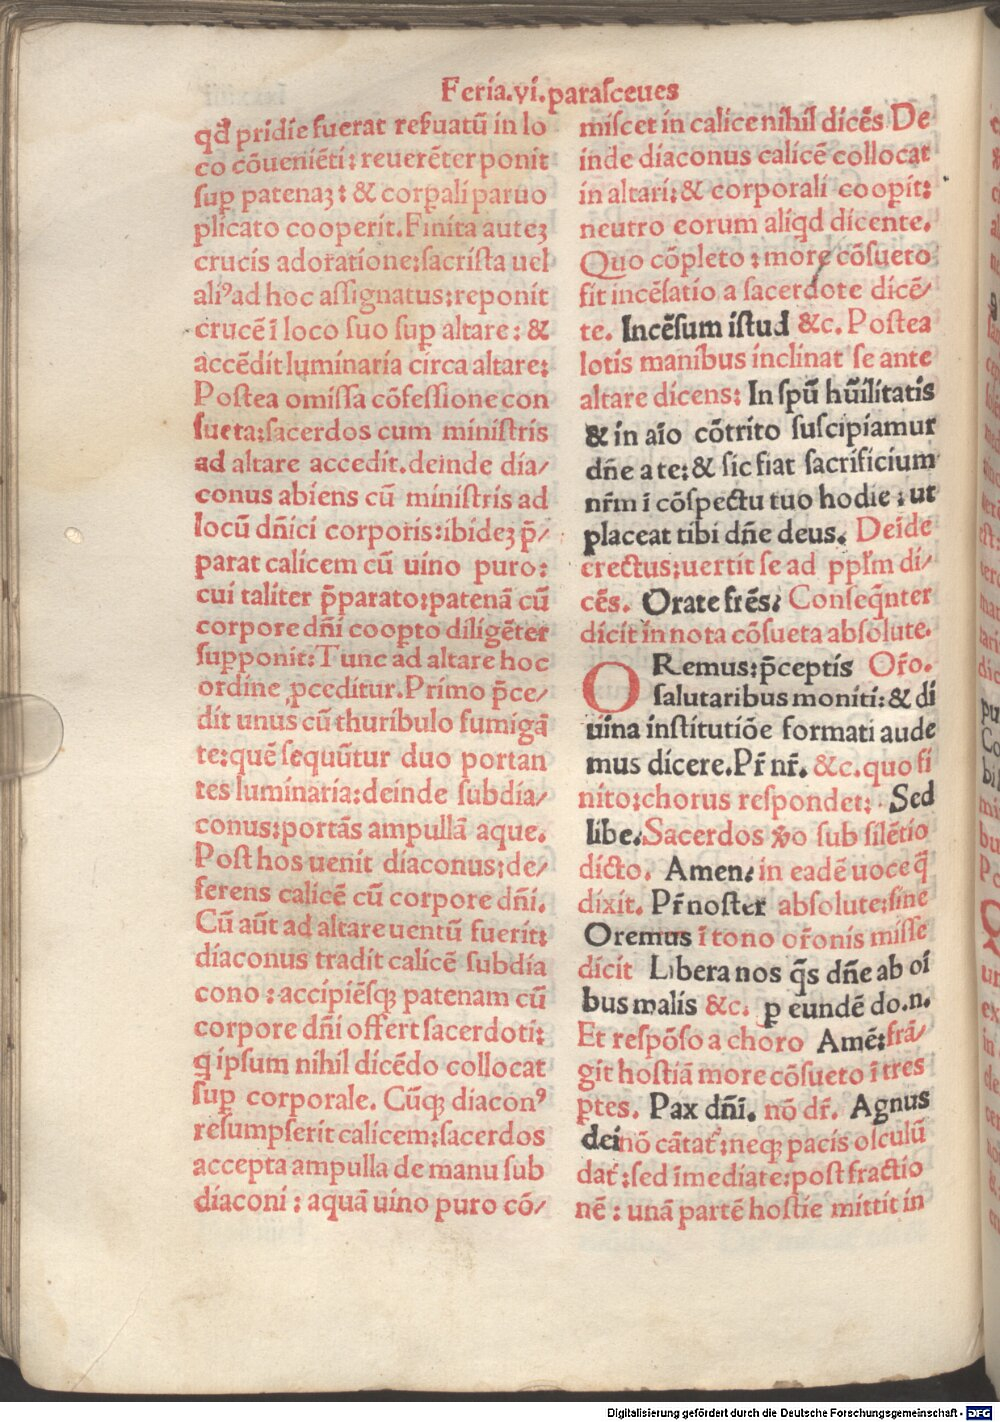 Feria.vi.parasceues
qđ pridie fuerat reſuatū in lo
co cōueniēti: reuerēter ponit
suꝑ patenaꝫ: & corꝑali paruo
plicato cooperit. Finita auteꝫ
crucis adoratione: sacriſta uel
aliꝰ ad hoc aſſignatus: reponit
crucē ī loco suo suꝑ altare: &
accēdit luminaria circa altare:
Poſtea omiſſa cōfeſſione con
ſueta: sacerdos cum miniſtris
ad altare accedit. deinde dia/
conus abiens cū miniſtris ad
locū dn̄ici corporis: ibideꝫ p̄/
parat calicem cū uino puro:
cui taliter p̄parato: patenā cū
corpore dn̄i coopto diligēter
supponit: Tunc ad altare hoc
ordine ꝓceditur. Primo p̄ce/
dit unus cū thuribulo fumigā
te: quē ſequūtur duo portan
tes luminaria: deinde ſubdia/
conus: portās ampullā aque.
Poſt hos uenit diaconus: de/
ferens calicē cū corpore dn̄i.
Cū aūt ad altare uentū fuerit:
diaconus tradit calicē ſubdia
cono: accipiēſqꝫ patenam cū
corpore dn̄i offert ſacerdoti:
q ipſum nihil dicēdo collocat
ſuꝑ corporale. Cūqꝫ diaconꝰ
reſumpſerit calicem: ſacerdos
accepta ampulla de manu ſub
diaconi: aquā uino puro cō/
miſcet in calice nihil dicēs De
inde diaconus calicē collocat
in altari: & corporali coopit:
neutro eorum aliqd dicente.
Quo cōpleto: more cōſueto
fit incēſatio a ſacerdote dicē/
te. Incēſum iſtud &c. Poſtea
lotis manibus inclinat ſe ante
altare dicens: In ſpū hūilitatis
& in aīo cōtrito ſuſcipiamur
dn̄e a te: & ſic fiat ſacrificium
nr̄m ī cōſpectu tuo hodie: ut
placeat tibi dn̄e deus. Deīde
erectus: uertit ſe ad ppl̄m di/
cēs. Orate fr̄es: Conſeq̄nter
dicit in nota cōſueta abſolute.
ORemus: p̄ceptis Or̄o.
ſalutaribus moniti: & di
uina inſtitutiōe formati aude
mus dicere. Pr̄ nr̄. &c. quo fi
nito: chorus reſpondet: Sed
libe. Sacerdos v̄o ſub ſilētio
dicto. Amen: in eadē uoce q̄
dixit. Pr̄ noſter abſolute: ſine
Oremus ī tono or̄onis miſſe
dicit Libera nos q̄s dn̄e ab oī
bus malis &c. ꝑ eundē do.n.
Et reſpōſo a choro Amē: frā/
git hoſtiā more cōſueto ī tres
ꝑtes. Pax dn̄i. nō dr̄. Agnus
dei nō cātat̄: neqꝫ pacis oſculū
dat̄: ſed īmediate: poſt fractio
nē: unā partē hoſtie mittit in
Digitalisierung gefördert durch die Deutsche Forschungsgemeinschaft - DFG